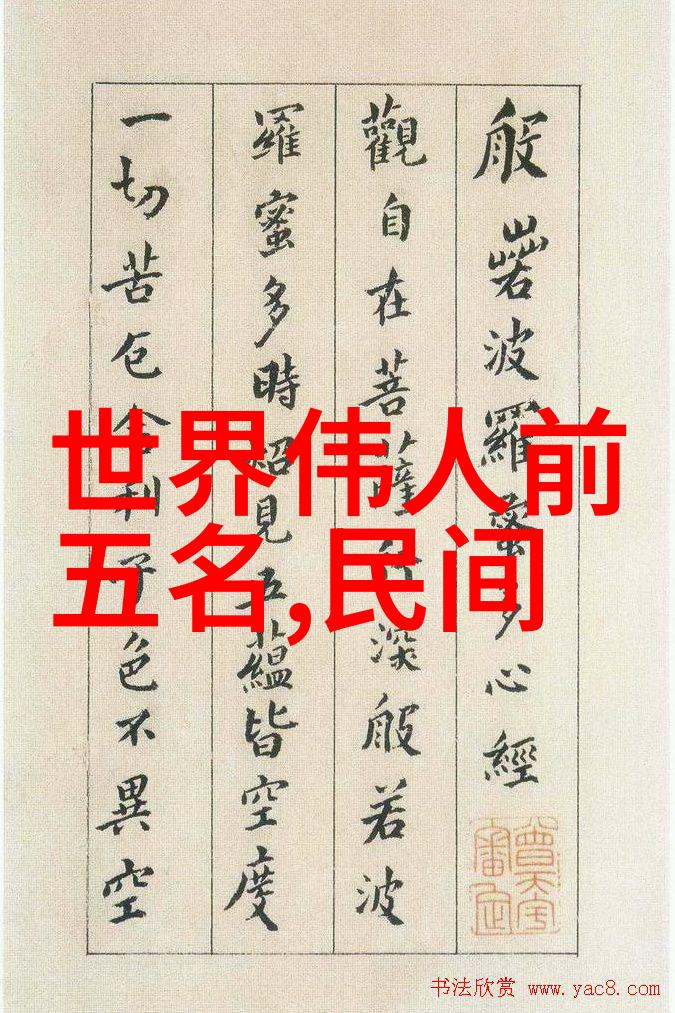 般若波羅蜜多心經
觀自在菩薩行深般若波
羅蜜多時照見五蘊皆空度
一切苦厄舍利子色不異空
世界伟人前
五名,民间
书法欣赏 www.yac8.com